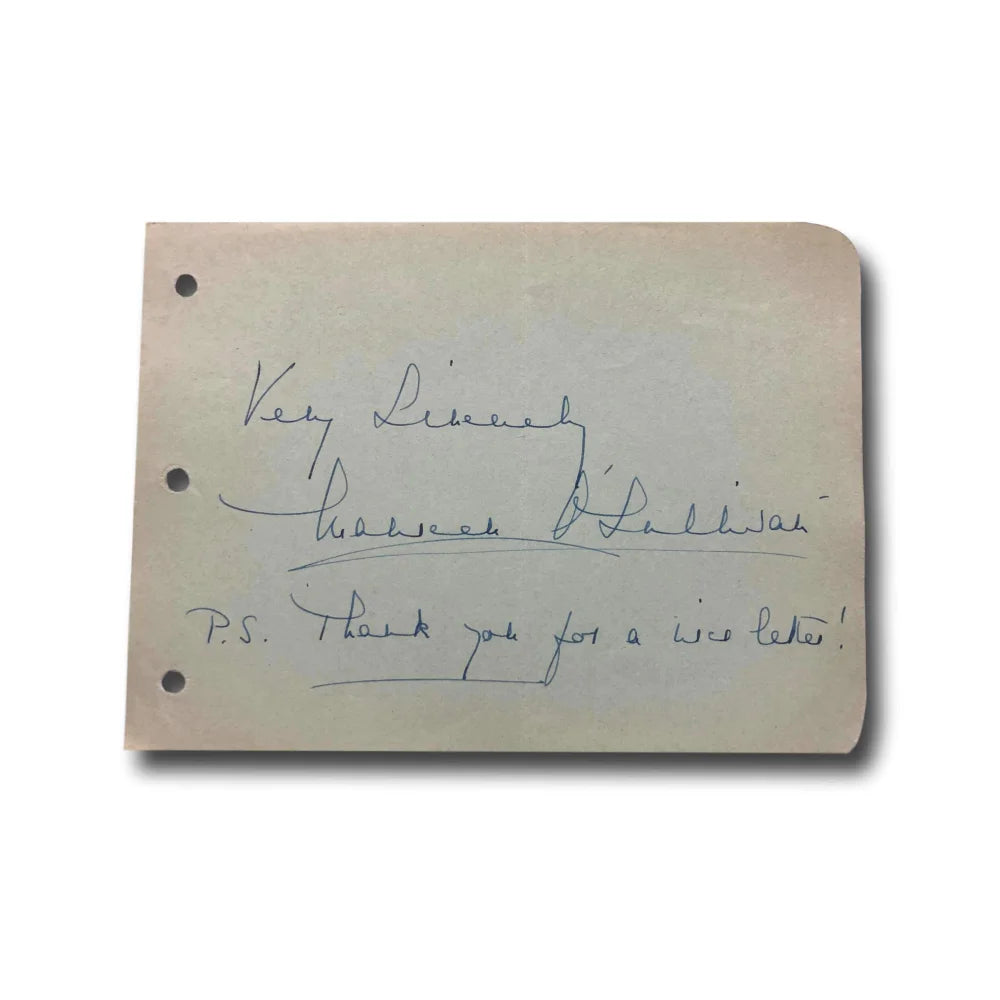 Very Sincerely
Maureen O'Sullivan
P.S. Thank you for a nice letter!